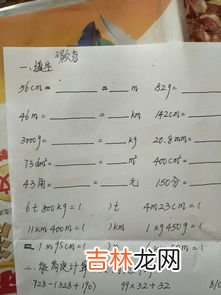 一、填空
36cm=____=____m 82g=
46m=____=____km 142cm=
3000g=____=____kg 20.8mm=
73dm²=____=____m² 400cm²=
43角=____=____元 150分=
6t800kg=( )t 4m23cm=(
11km400m=( )km 1kg450g=(
1m95cm=(
728-(328+190) 99×32+32
吉林龙网